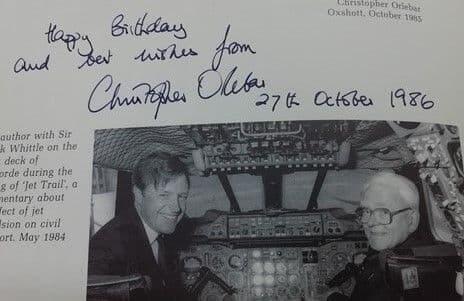 Christopher Orlebar
Oxshott, October 1985
Happy Birthday
and best wishes from
Christopher Orlebar
27th October 1986
author with Sir
k Whittle on the
deck of
orde during the
g of 'Jet Trail', a
mentary about
fect of jet
lsion on civil
ort. May 1984